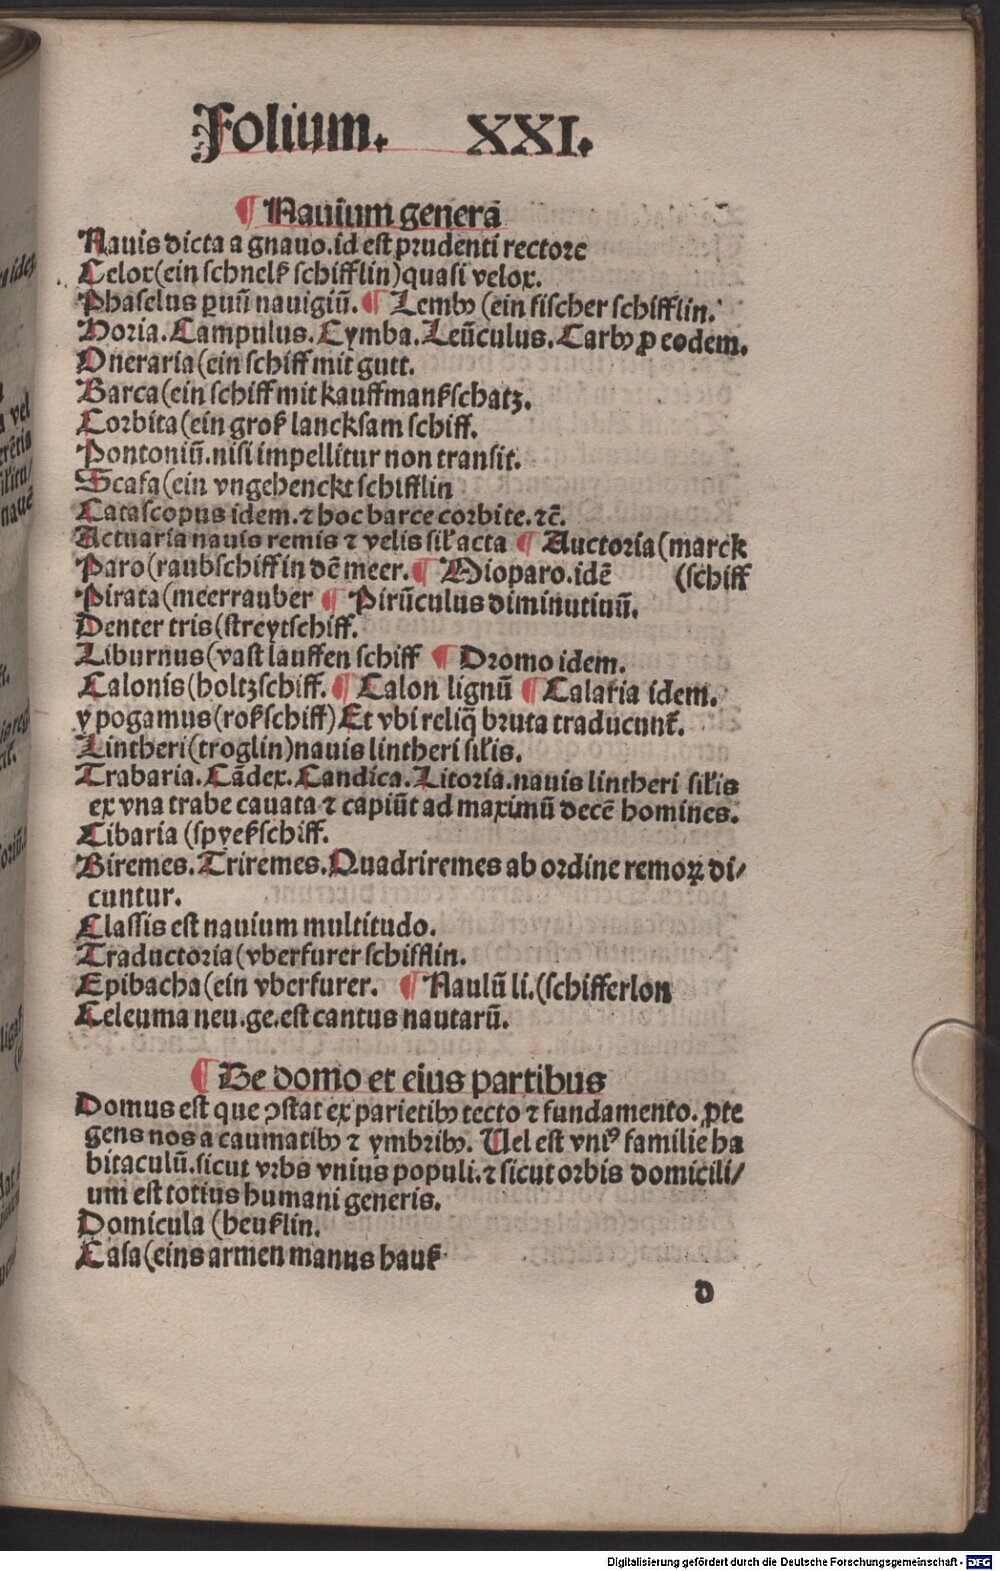 Folium. XXI.
¶ Nauium genera
Nauis dicta a gnauo.id est prudenti rectore
Celox(ein schnelß schifflin)quasi velox.
Phaselus ꝑuū nauigiū. ¶ Lembꝰ (ein fischer schifflin.
Horia.Campulus.Cymba.Leūculus.Carbꝰ ꝓ eodem.
Oneraria(ein schiff mit gutt.
Barca(ein schiff mit kauffmanßschatz.
Corbita(ein groß lancksam schiff.
Pontoniū.nisi impellitur non transit.
Scafa(ein vngehenckt schifflin
Catascopus idem.⁊ hoc barce corbite.⁊c̄.
Actuaria nauis remis ⁊ velis sil̃ acta ¶ Auctoria(marck
Paro(raubschiff in dē meer. ¶ Mioparo.idē (schiff
Pirata(meerrauber ¶ Pirūculus diminutiuū.
Denter tris(streytschiff.
Liburnus(vast lauffen schiff ¶ Dromo idem.
Calonis(holtzschiff. ¶ Calon lignū ¶ Calaria idem.
ypogamus(roßschiff)Et vbi reliq̄ bruta traducunt̃.
Lintheri(troglin)nauis lintheri sil̃is.
Trabaria.Cādex.Candica.Litoria.nauis lintheri sil̃is
ex vna trabe cauata ⁊ capiūt ad maximū decē homines.
Cibaria (spyeßschiff.
Biremes.Triremes.Quadriremes ab ordine remoꝝ di/
cuntur.
Classis est nauium multitudo.
Traductoria(vberfurer schifflin.
Epibacha(ein vberfurer. ¶ Naulū li.(schifferlon
Celeuma neu.ge.est cantus nautarū.
¶ De domo et eius partibus
Domus est que ꝯstat ex parietibꝰ tecto ⁊ fundamento.ꝓte
gens nos a caumatibꝰ ⁊ ymbribꝰ. Uel est vniꝰ familie ha
bitaculū.sicut vrbs vnius populi.⁊ sicut orbis domicili/
um est totius humani generis.
Domicula (heußlin.
Casa(eins armen manns hauß
d
Digitalisierung gefördert durch die Deutsche Forschungsgemeinschaft - DFG